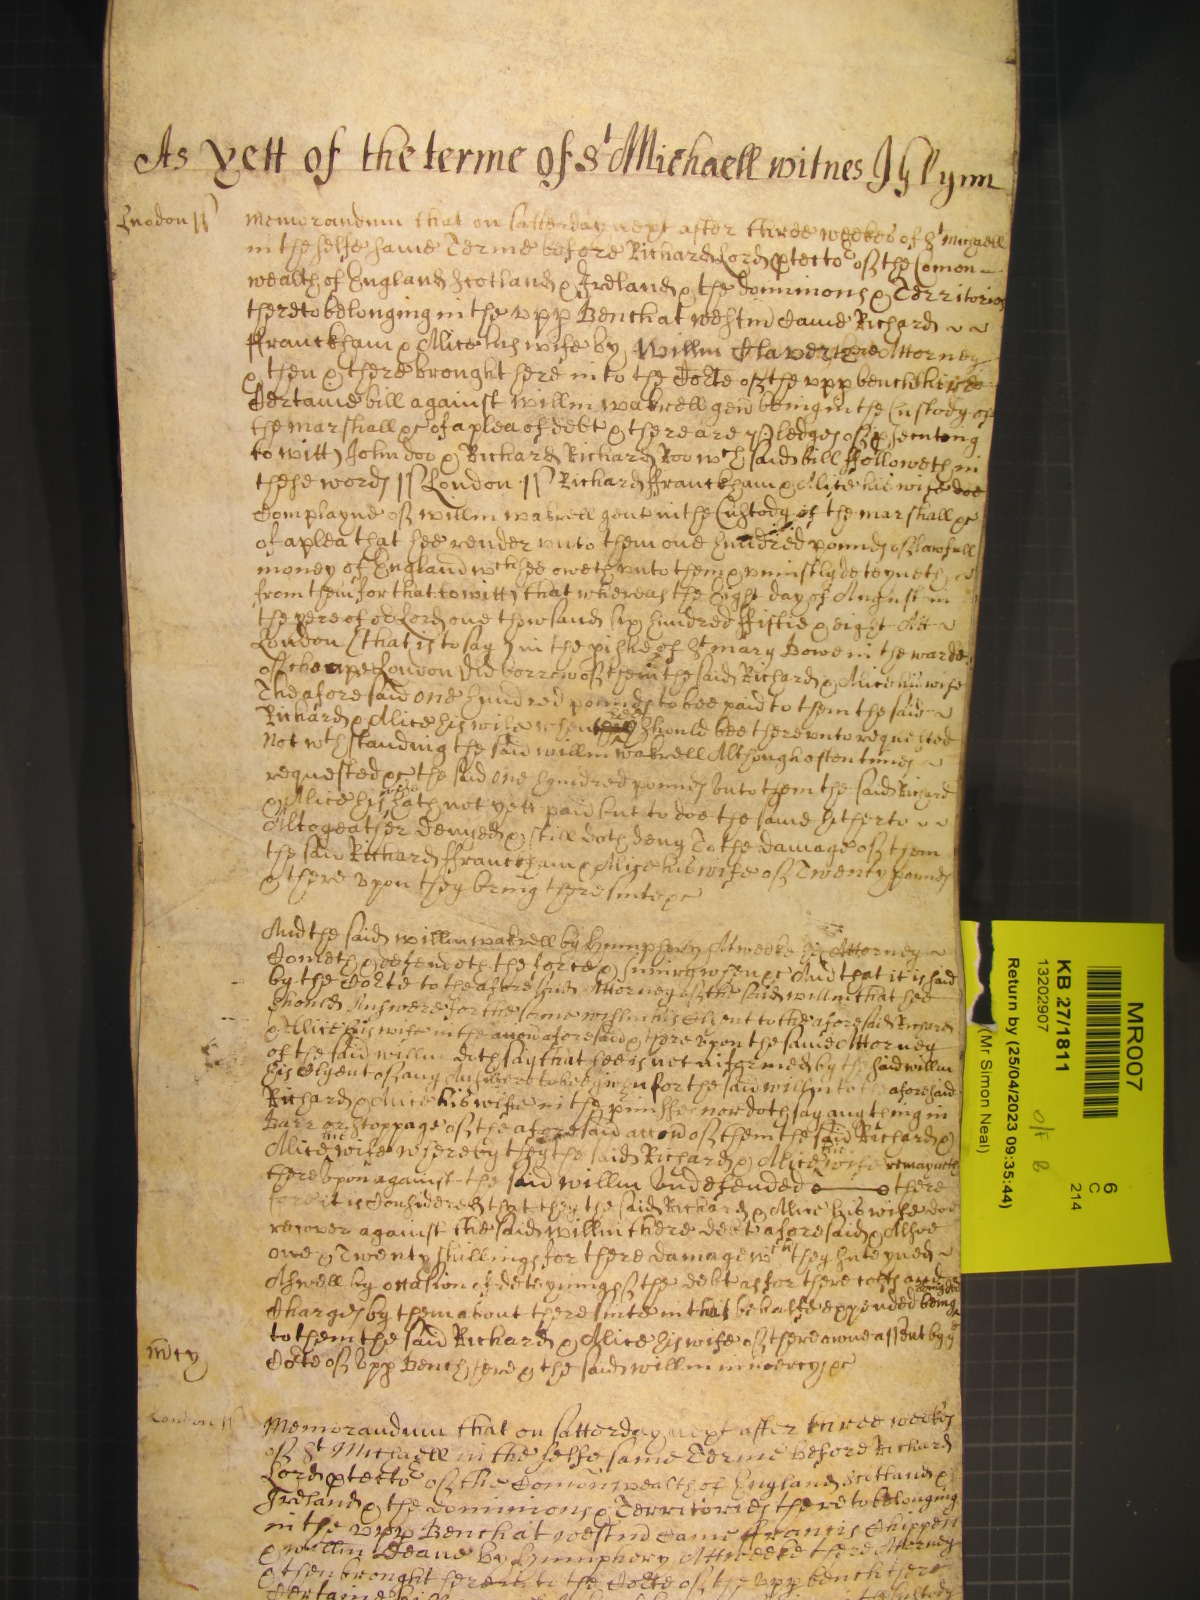 As yett of the terme of St Michaell witnes Jo Glynn
London ss Memorandum that on Satterday next after three weekes of St Michaell
in the selfe same Terme before Richard Lord ptector of the Comon
wealth of England Scotland & Ireland & the dominions & Territories
thereto belonging in the upp Bench at westmr Came Richard
ffranckham & Alice his wife by Willm Claver there Attorney
& then & there brought here into the Corte of the upp bench there
Certaine bill against Willm wakrell gen being in the Custody of
the marshall &c of a plea of debt & there are pledges of psecuting
to witt John doo & Richard Richard Roo wch said bill ffolloweth in
these words ss London ss Richard ffranckham & Alice his wife doe
Complayne of willm wakrell gent in the Custody of the marshall &c
of a plea that hee render unto them one hundred pounds of lawfull
money of England wch hee oweth unto them & uniustly deteyneth
from them for that to witt that whereas the Eight day of August in
the yere of or Lord one thowsand six hundred ffiftie & eight Att
London (that is to say) in the pishe of St mary Bowe in the warde
of cheape London Did borrow of them the said Richard & Alice his wife
The aforesaid one hundred pounds to bee paid to them the said
Richard & Alice his wife when hee should bee thereunto requested
Not wth standing the said willm wakrell Although oftentimes
requested &c the said one hundred pounds unto them the said Richard
& Alice his wife hath not yett paid but to doe the same hitherto
Altogeather denyed & still doth deny To the damage of them
the said Richard ffranckham & Alice his wife of Twenty pounds
& there upon they bring there sute &c
And the said willm wakrell by Humphery Atweeke his Attorney
Cometh & defendeth the force & iniury when &c And that it is said
by the Corte to the aforesaid Attorney of the said willm that hee
should Answere for the same willm his Clyent to the aforesaid Richard
& Alice his wife in the accon aforesaid & there upon the same Attorney
of the said willm doth say that hee is not informed by the said willm
his Clyent of any Answere to bee given for the said willm to the aforesaid
Richard & Alice his wife in the pmisses nor doth say any thing in
Barr or stoppage of the aforesaid accon of them the said Richard &
Alice his wife whereby they the said Richard & Alice his wife remayneth
there upon against the said willm undefended there
fore it is Considered that they the said Richard & Alice his wife doe
recover against the said willm there debt aforesaid & Alsoe
one & Twenty shillings for there damage wch they susteyned
Aswell by occasion of deteyning of the debt as for there costs and
Charges by them about there sute in that behalfe expended being adiudged
to them the said Richard & Alice his wife of there owne assent by ye
Corte of upp Bench here & the said willm in mercy &c
mcy
London ss Memorandum that on Satterday next after three weekes
of St Michaell in the selfe same Terme before Richard
Lord ptector of the Comonwealth of England Scotland &
Ireland & the dominions & Territories thereto belonging
in the upp Bench at westmr Came Francis Chippen
& willm Deane by Humphery Attweeke there Attorney
& then brought here into the Corte of the upp bench there
Certaine
MR007
KB 27/1811
13202907
Return by (25/04/2023 09:35:44)
(Mr Simon Neal)
6
C
214